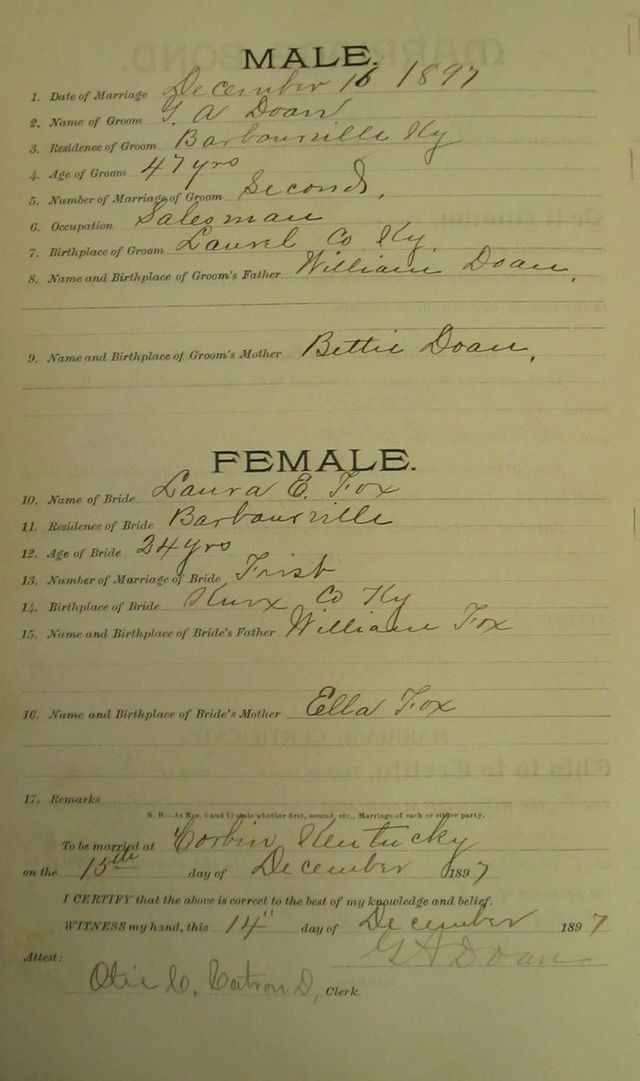 MALE.
1. Date of Marriage December 16 1897
2. Name of Groom G. A Doan
3. Residence of Groom Barbourville Ky
4. Age of Groom 47 yrs
5. Number of Marriage of Groom Second.
6. Occupation Salesman
7. Birthplace of Groom Laurel Co Ky.
8. Name and Birthplace of Groom's Father William Doan.
9. Name and Birthplace of Groom's Mother Bettie Doan.
FEMALE.
10. Name of Bride Laura E. Fox
11. Residence of Bride Barbourville
12. Age of Bride 24 yrs
13. Number of Marriage of Bride Frist
14. Birthplace of Bride Knox Co Ky
15. Name and Birthplace of Bride's Father William Fox
16. Name and Birthplace of Bride's Mother Ella Fox
17. Remarks
N. B.—At Nos. 5 and 13 state whether first, second, etc., Marriage of each or either party.
To be married at Corbin Kentucky
on the 15th day of December 1897
I CERTIFY that the above is correct to the best of my knowledge and belief.
WITNESS my hand, this 14" day of December 1897
G A Doan
Attest:
Clerk.